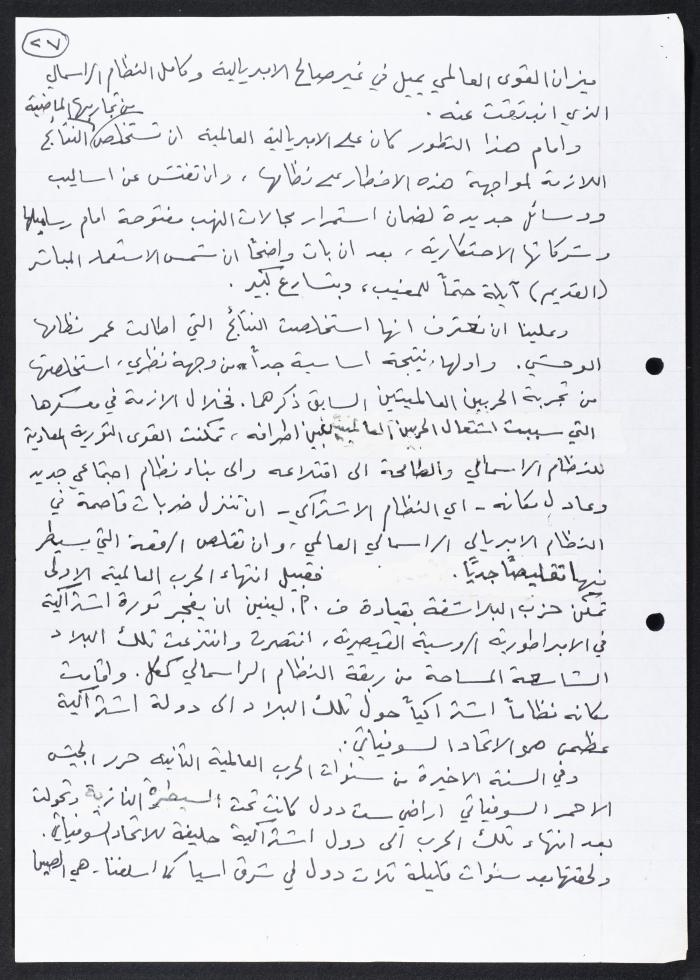 ٢٧
ميزان القوى العالمي يميل في غير صالح الامبريالية وكامل النظام الراسمالي
الذي انبثقت عنه .
من تجاربها الماضية
وامام هذا التطور كان على الامبريالية العالمية ان تستخلص النتائج
اللازمة لمواجهة هذه الاخطار على نظامها ، وان تفتش عن اساليب
ووسائل جديدة لضمان استمرار مجالات النهب مفتوحة امام رساميلها
وشركاتها الاحتكارية ، بعد ان بات واضحاً ان شمس الاستعمار المباشر
(القديم) آيلة حتماً للمغيب ، وبتسارع كبير .
وعلينا ان نعترف انها استخلصت النتائج التي اطالت عمر نظامها
الوحشي . واولها ، نتيجة اساسية جداً من وجهة نظري ، استخلصتها
من تجربة الحربين العالميتين السابق ذكرهما . فخلال الازمة في معسكرها
التي سببت اشتعال الحربين العالميتين بين اطرافه ، تمكنت القوى الثورية المعادية
للنظام الراسمالي والطامحة الى اقتلاعه والى بناء نظام اجتماعي جديد
وعادل مكانه - اي النظام الاشتراكي - ان تنزل ضربات قاصمة في
النظام الامبريالي الراسمالي العالمي ، وان تقلص الرقعة التي يسيطر
فيها تقليصًا جديًا . فقبيل انتهاء الحرب العالمية الاولى
تمكن حزب البلاشفة بقيادة ف . إ . لينين ان يفجر ثورة اشتراكية
في الامبراطورية الروسية القيصرية ، انتصرت وانتزعت تلك البلاد
الشاسعة المساحة من ربقة النظام الراسمالي ككل . واقامت
مكانه نظاماً اشتراكياً حول تلك البلاد الى دولة اشتراكية
عظمى هو الاتحاد السوفياتي .
وفي السنة الاخيرة من سنوات الحرب العالمية الثانية حرر الجيش
الاحمر السوفياتي اراضي ست دول كانت تحت السيطرة النازية وتحولت
بعد انتهاء تلك الحرب الى دول اشتراكية حليفة للاتحاد السوفياتي .
ولحقتها بعد سنوات قليلة ثلاث دول في شرق اسيا كما اسلفنا - هي الصين